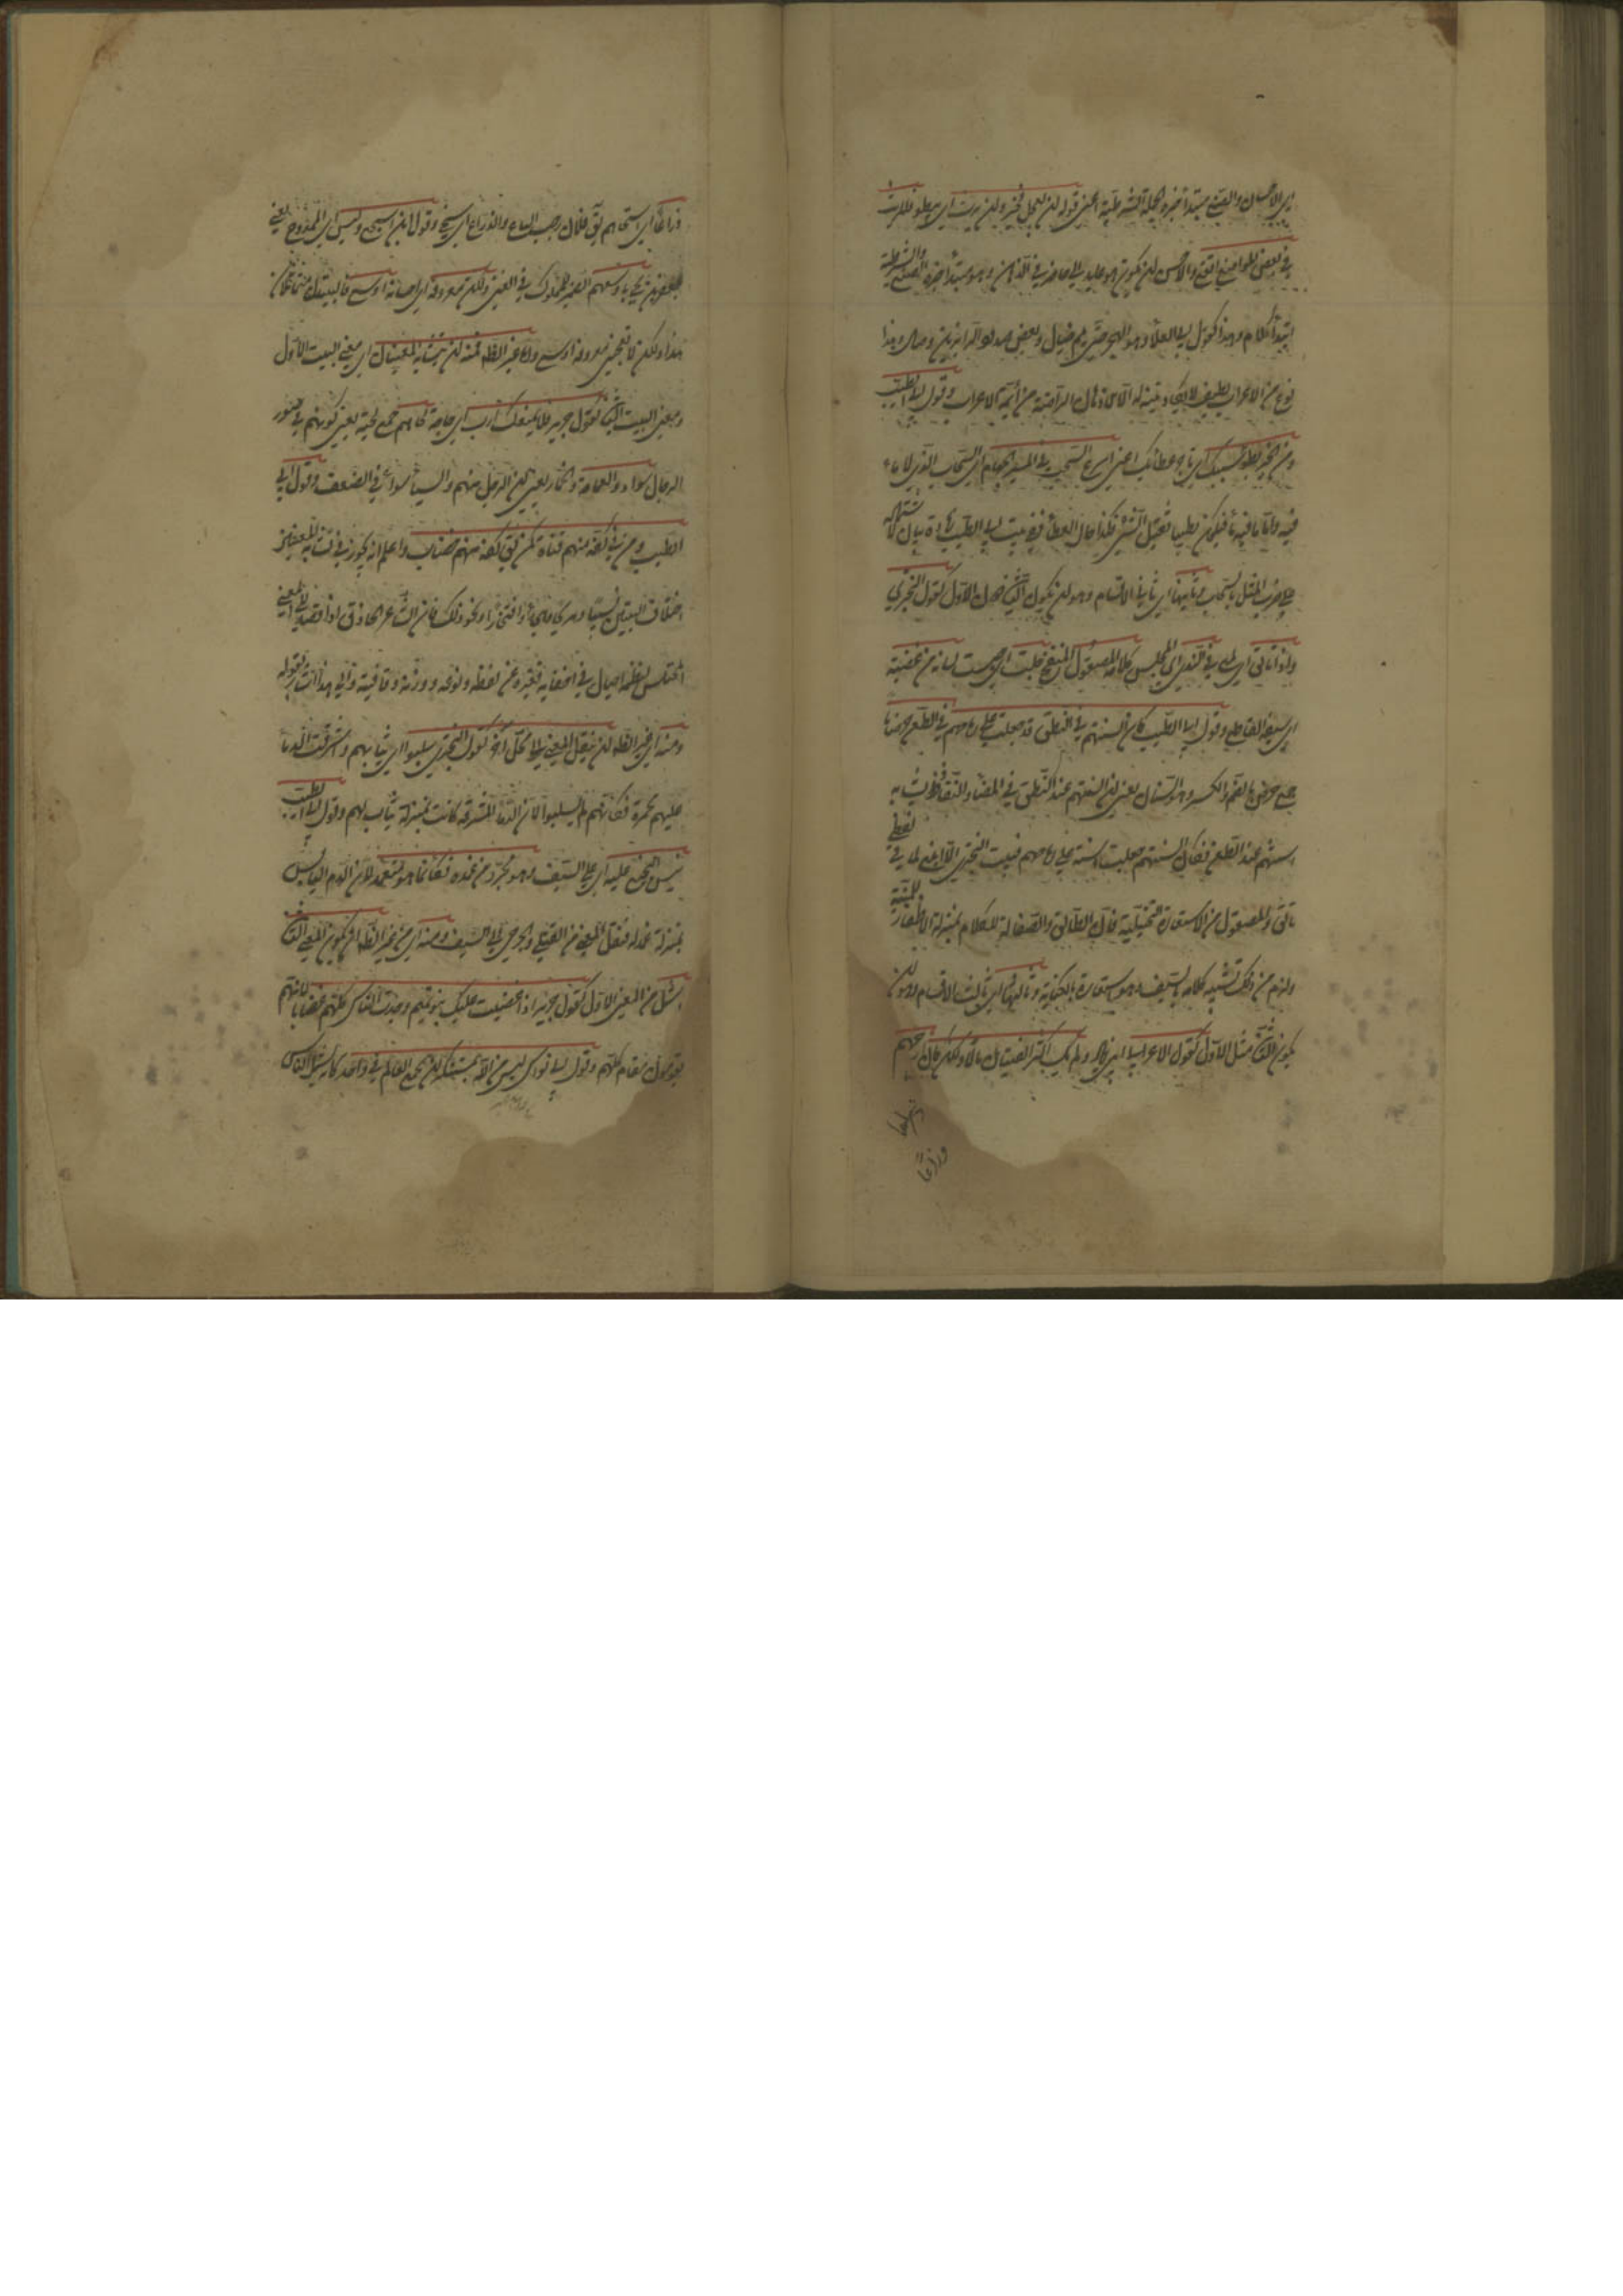 اي الاحسان والصنع مبتدأ خبره الجملة الشرطية اعني قوله ان يعجل فخير وان يرث اي يبطؤ فللريث
في بعض المواضع انفع والاحسن ان يكون هو عائدا الى حاضر في الذهن وهو مبتدأ خبره الصنع والشرطية
ابتداء كلام وهذا كقول ابي العلاء هو الهجر حتى يلم خيال وبعض صدود الزائرين وصال وهذا
نوع من الاعراب لطيف لا يكاد يتنبه له الا الاذهان الراضة من أئمة الاعراب وقول ابي الطيب
ومن الخير بطؤ سيبك اي تأخر عطائك عني اسرع السحب في المسير الجهام اي السحاب الذي لا ماء
فيه واما ما فيه ماء فيكون بطيئا ثقيل المشي فكذا حال العطاء ففي بيت ابي الطيب زيادة بيان لاشتماله
على ضرب المثل بالسحاب وثانيها اي ثاني الاقسام وهو ان يكون الثاني دون الاول كقول البحتري
واذا تألق اي لمع في الندى اي المجلس كلامه المصقول المنقح خلت اي حسبت لسانه من عضبه
اي سيفه القاطع وقول ابي الطيب كأن السنهم في النطق قد جعلت على رماحهم في الطعن خرصانا
جمع خرص بالضم والكسر وهو السنان يعني ان السنتهم عند النطق في المضاء والنفاذ تشابه
اسنتهم عند الطعن فكأن السنتهم جعلت اسنة على رماحهم فبيت البحتري ابلغ لما في لفظي
تألق والمصقول من الاستعارة التخييلية فان التألق والصقالة للكلام بمنزلة الاظفار للمنية
ولزم من ذلك تشبيه كلامه بالسيف وهو استعارة بالكناية وثالثها اي ثالث الاقسام وهو ان
يكون الثاني مثل الاول كقول الاعرابي ابي زياد ولم يك اكثر الفتيان مالا ولكن كان ارحبهم
ذراعا
ذراعا اي اسخاهم يق فلان رحب الباع والذراع اي سخي وقول اشجع وليس اي الممدوح يعني
جعفر بن يحيى باوسعهم الضمير للملوك في الغنى ولكن معروفه اي احسانه اوسع فالبيتان متماثلان
هذا ولكن لا يعجبني معروفه اوسع واما غير الظاهر فمنه ان يتشابه المعنيان اي معنى البيت الاول
ومعنى البيت الثاني كقول جرير فلا يمنعك من ارب اي حاجة لحاهم جمع لحية يعني كونهم في صور
الرجال سواء ذو العمامة والخمار يعني ان الرجال منهم والنساء سواء في الضعف وقول ابي
الطيب ومن في كفه منهم قناة كمن في كفه منهم خضاب واعلم انه يجوز في تشابه المعنيين
اختلاف البيتين نسيبا ومديحا وهجاء وافتخارا ونحو ذلك فان الشاعر الحاذق اذا قصد الى المعنى
المختلس لنظمه احتال في اخفائه فغيره عن لفظه ونوعه ووزنه وقافيته والى هذا اشار بقوله
ومنه اي غير الظاهر ان ينقل المعنى الى محل اخر كقول البحتري سلبوا اي ثيابهم واشرقت الدماء
عليهم محمرة فكأنهم لم يسلبوا لان الدماء المشرقة كانت بمنزلة ثياب لهم وقول ابي الطيب
يبس النجيع عليه اي على السيف وهو مجرد من غمده فكأنما هو مغمد لان الدم اليابس
بمنزلة غمد له فنقل المعنى من القتلى والجرحى الى السيف ومنه اي من غير الظاهر ان يكون المعنى الثاني
اشمل من المعنى الاول كقول جرير اذا غضبت عليك بنو تميم وجدت الناس كلهم غضابا لانهم
يقومون مقام كلهم وقول ابي نواس ليس من الله بمستنكر ان يجمع العالم في واحد فانه يشمل الناس